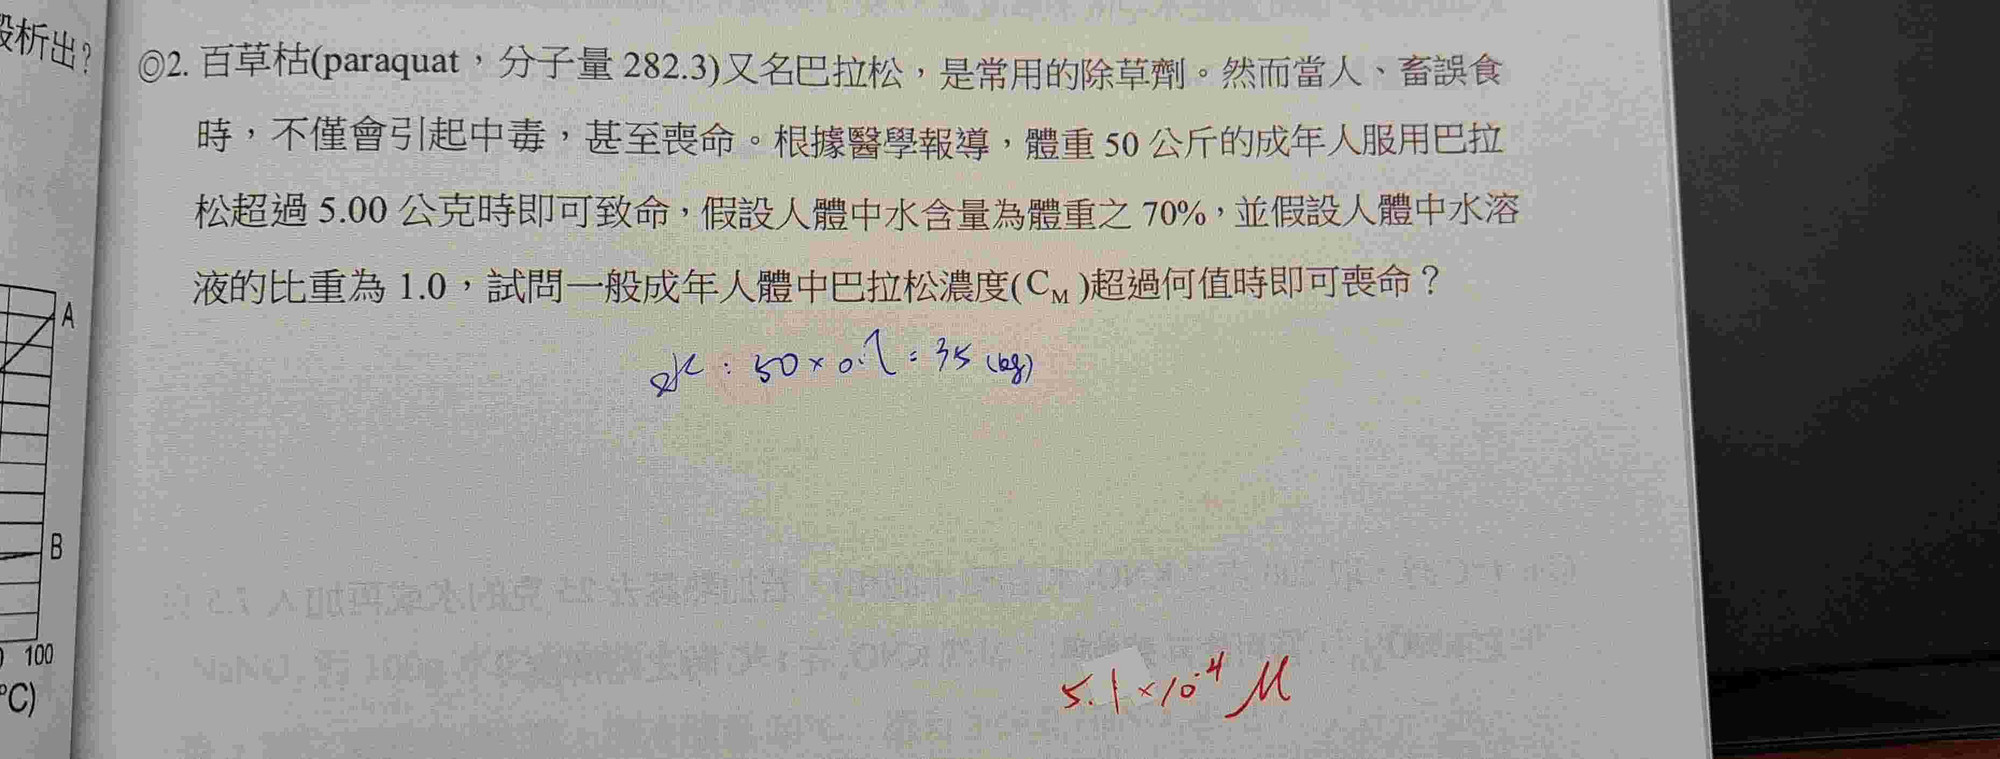 設析出?
◎2. 百草枯(paraquat,分子量 282.3)又名巴拉松,是常用的除草劑。然而當人、畜誤食
時,不僅會引起中毒,甚至喪命。根據醫學報導,體重 50 公斤的成年人服用巴拉
松超過 5.00 公克時即可致命,假設人體中水含量為體重之 70%,並假設人體中水溶
液的比重為 1.0,試問一般成年人體中巴拉松濃度(C_M)超過何值時即可喪命?
A
水:50×0.7=35 (kg)
B
100
°C)
5.1×10⁻⁴ M